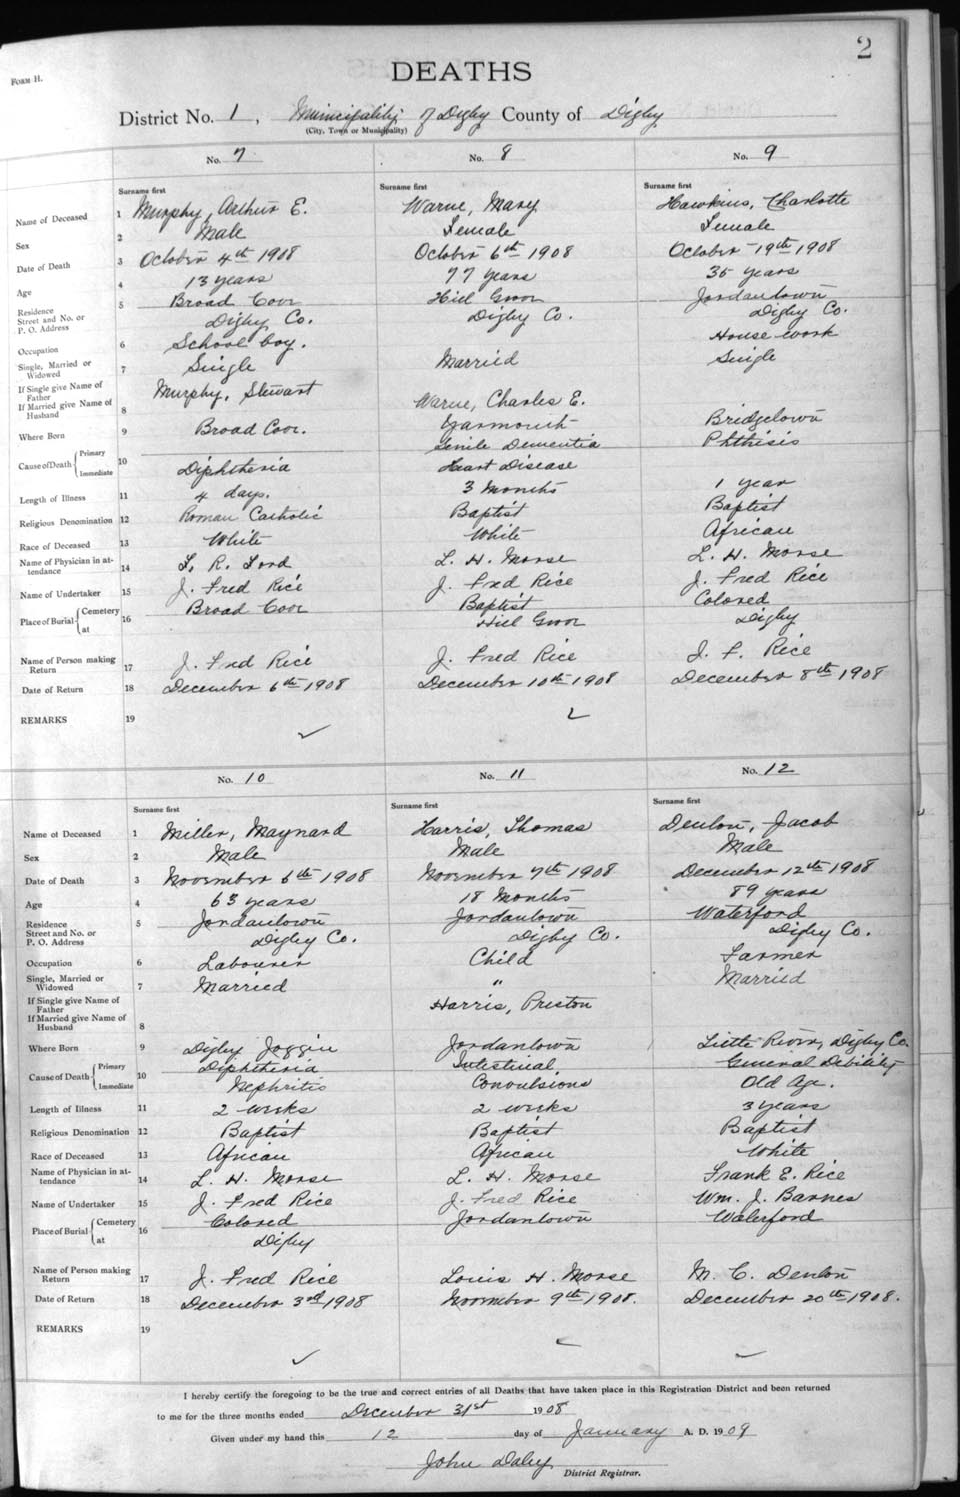 2
FORM H.
DEATHS
District No. 1, Municipality of Digby County of Digby
(City, Town or Municipality)
No. 7 No. 8 No. 9
Surname first Surname first Surname first
Name of Deceased 1 Murphy, Arthur E. Warne, Mary Hawkins, Charlotte
Sex 2 Male Female Female
Date of Death 3 October 4th 1908 October 6th 1908 October 19th 1908
Age 4 13 years 77 years 35 years
Residence Street and No. or P. O. Address 5 Broad Cove Digby Co. Hill Grove Digby Co. Jordantown Digby Co.
Occupation 6 School boy. House work
Single, Married or Widowed 7 Single Married Single
If Single give Name of Father If Married give Name of Husband 8 Murphy, Stewart Warne, Charles E.
Where Born 9 Broad Cove. Yarmouth Bridgetown
Cause of Death Primary Senile Dementia Phthisis
10 Immediate Diphtheria Heart Disease
Length of Illness 11 4 days. 3 Months 1 year
Religious Denomination 12 Roman Catholic Baptist Baptist
Race of Deceased 13 White White African
Name of Physician in attendance 14 F. R. Ford L. H. Morse L. H. Morse
Name of Undertaker 15 J. Fred Rice J. Fred Rice J. Fred Rice
Place of Burial Cemetery Broad Cove Baptist Colored
16 at Hill Grove Digby
Name of Person making Return 17 J. Fred Rice J. Fred Rice J. F. Rice
Date of Return 18 December 6th 1908 December 10th 1908 December 8th 1908
REMARKS 19
No. 10 No. 11 No. 12
Surname first Surname first Surname first
Name of Deceased 1 Miller, Maynard Harris, Thomas Denton, Jacob
Sex 2 Male Male Male
Date of Death 3 November 6th 1908 November 7th 1908 December 12th 1908
Age 4 63 years 18 Months 89 years
Residence Street and No. or P. O. Address 5 Jordantown Digby Co. Jordantown Digby Co. Waterford Digby Co.
Occupation 6 Labourer Child Farmer
Single, Married or Widowed 7 Married " Married
If Single give Name of Father If Married give Name of Husband 8 Harris, Preston
Where Born 9 Digby Joggin Jordantown Little River, Digby Co.
Cause of Death Primary Diphtheria Intestinal General Debility
10 Immediate Nephritis Convulsions Old Age.
Length of Illness 11 2 weeks 2 weeks 3 years
Religious Denomination 12 Baptist Baptist Baptist
Race of Deceased 13 African African White
Name of Physician in attendance 14 L. H. Morse L. H. Morse Frank E. Rice
Name of Undertaker 15 J. Fred Rice J. Fred Rice Wm. J. Barnes
Place of Burial Cemetery Colored Jordantown Waterford
16 at Digby
Name of Person making Return 17 J. Fred Rice Louis H. Morse M. C. Denton
Date of Return 18 December 3rd 1908 November 9th 1908. December 20th 1908.
REMARKS 19
I hereby certify the foregoing to be the true and correct entries of all Deaths that have taken place in this Registration District and been returned
to me for the three months ended December 31st 1908
Given under my hand this 12 day of January A. D. 1909
John Daley
District Registrar.